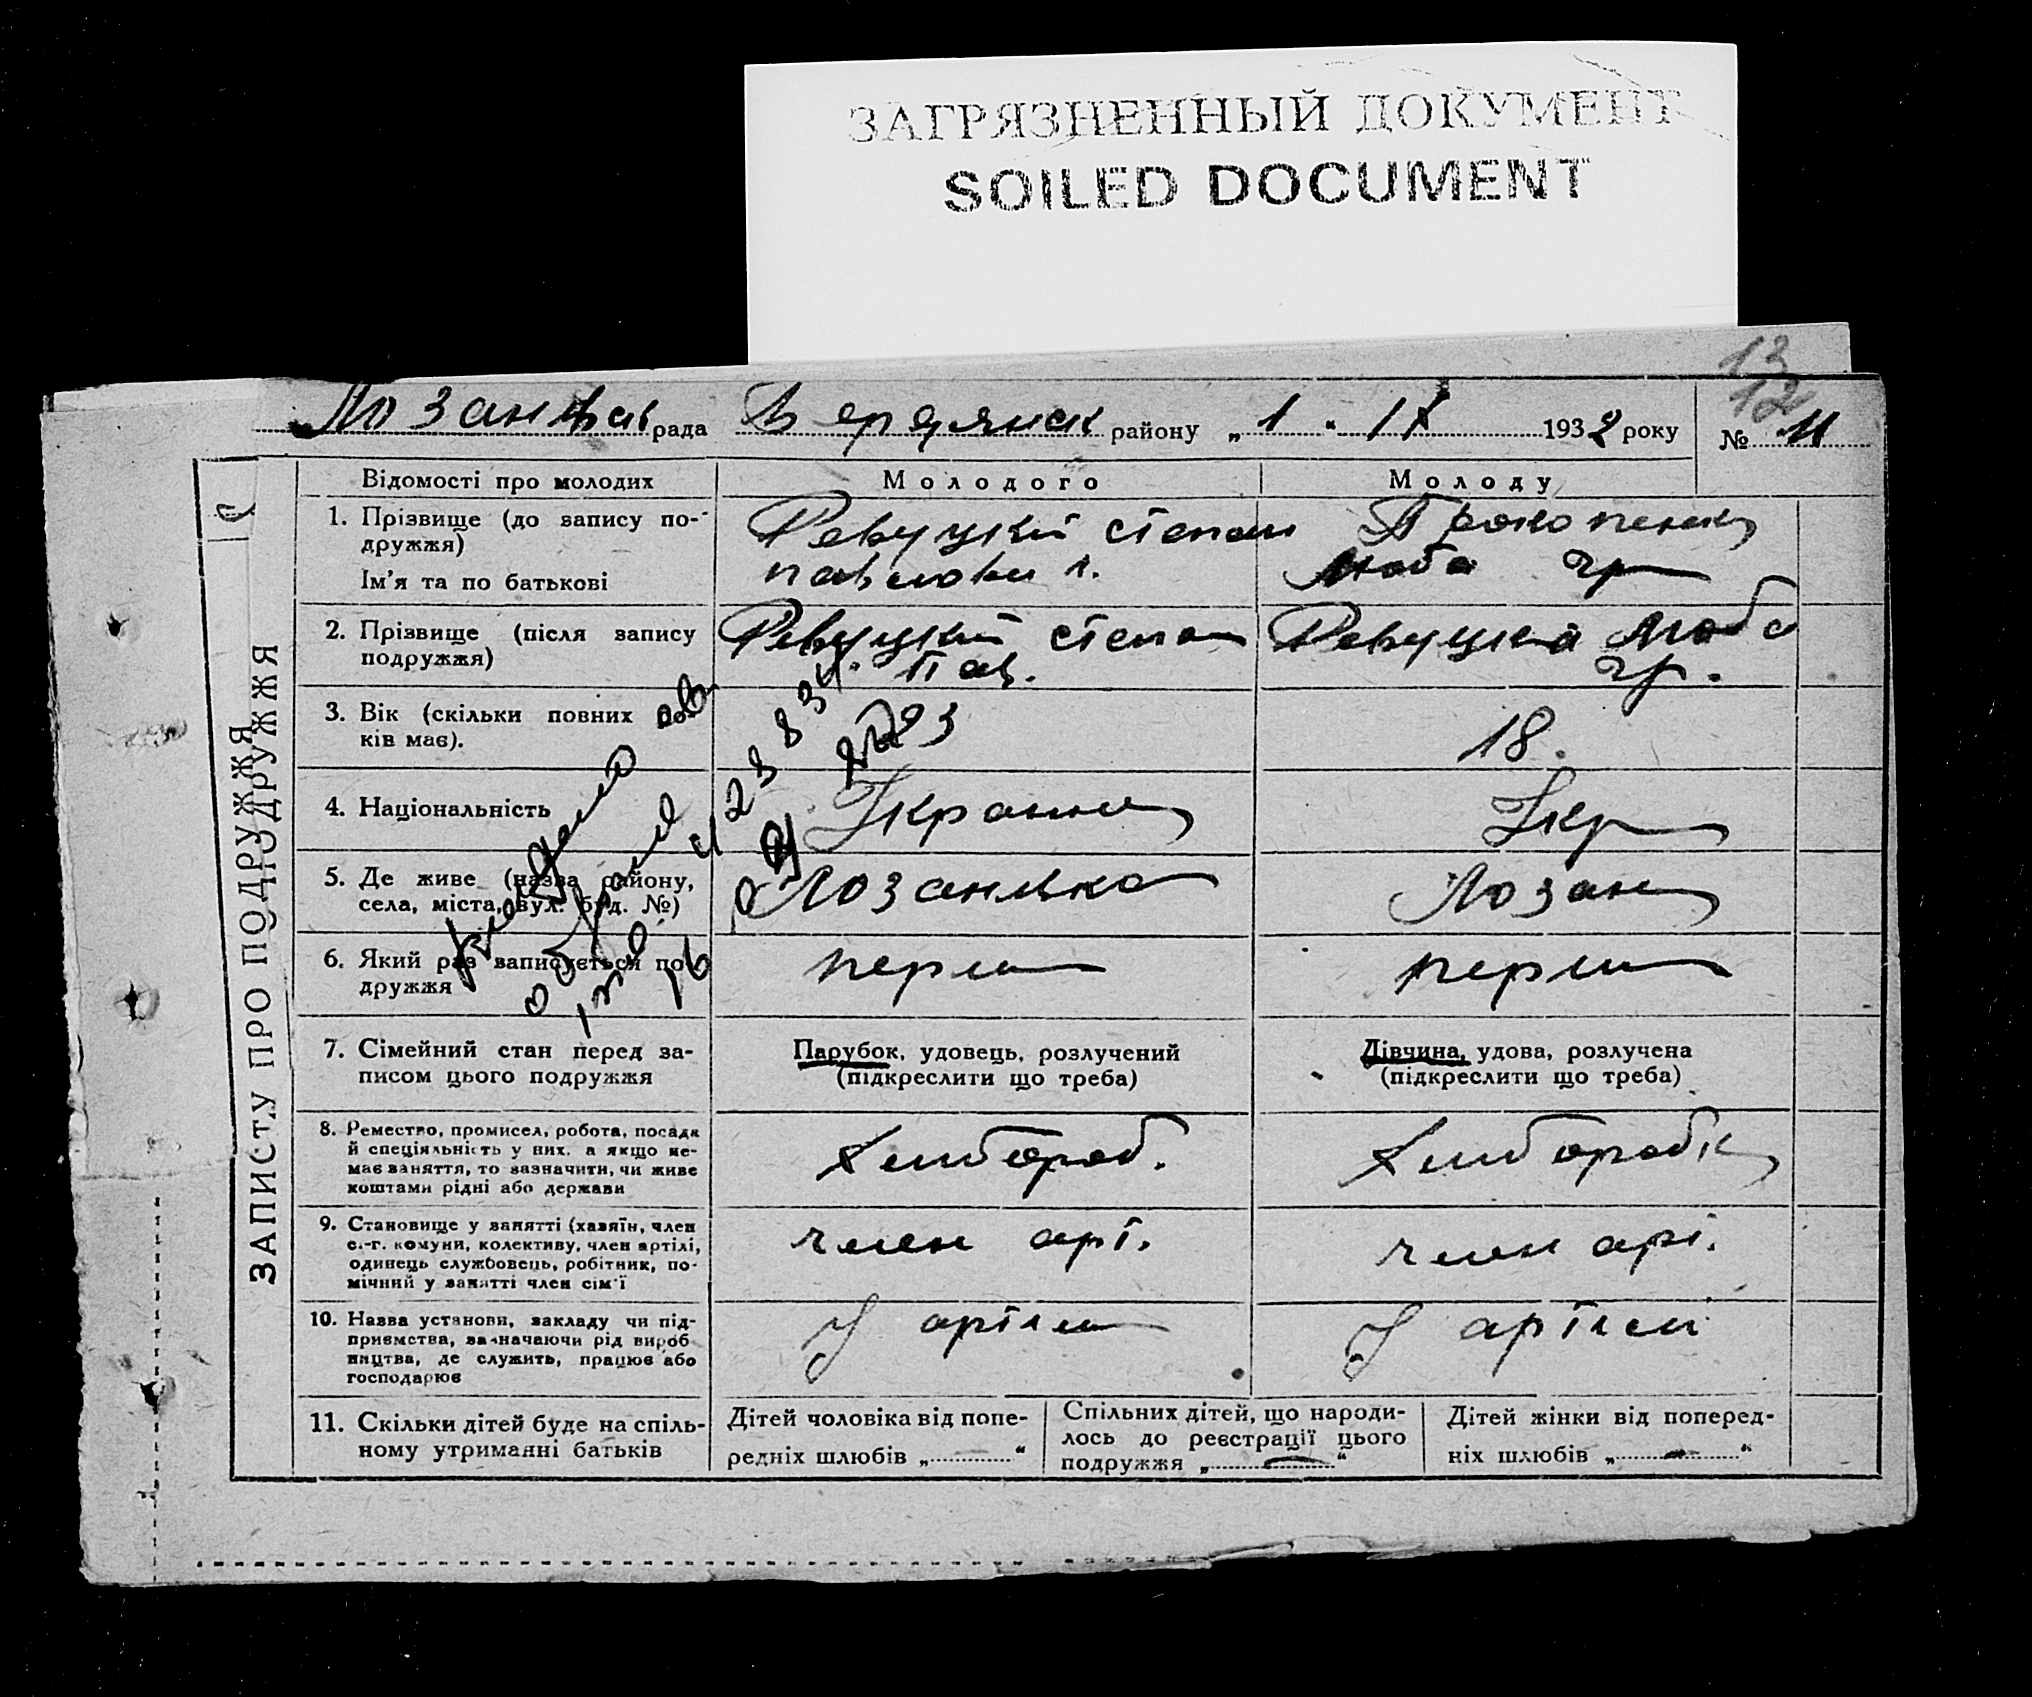 ЗАГРЯЗНЕННЫЙ ДОКУМЕНТ
SOILED DOCUMENT
13
12
рада Бердянск району „1“ IX 1932 року № 11
ЗАПИСТУ ПРО ПОДРУЖЖЯ
Відомості про молодих Молодого Молоду
1. Прізвище (до запису подружжя) Ревуцкий Степан
Ім’я та по батькові Люба Гр
2. Прізвище (після запису подружжя) Ревуцкий Степан Пав. Ревуцка Люба Гр.
3. Вік (скільки повних ро-
ків має). 23 18.
4. Національність Украинец Укр
5. Де живе (назва району,
села, міста, вул. буд. №) Лозанька Лозан
6. Який раз записується по-
дружжя перш перш
7. Сімейний стан перед за- Парубок, удовець, розлучений Дівчина, удова, розлучена
писом цього подружжя (підкреслити що треба) (підкреслити що треба)
8. Ремество, промисел, робота, посада
й спеціяльність у них, а якщо не-
має заняття, то зазначити, чи живе
коштами рідні або держави Хлибороб. Хлиборобк
9. Становище у занятті (хазяїн, член
с.-г. комуни, колективу, член артілі,
одинець службовець, робітник, по-
мічний у занятті член сім’ї член арт. член арт.
10. Назва установи, закладу чи під-
приємства, зазначаючи рід вироб
ництва, де служить, працює або
господарює У артили У артили
11. Скільки дітей буде на спіль-
ному утриманні батьків
Дітей чоловіка від попе-
редніх шлюбів „ “
Спільних дітей, що народи-
лось до реєстрації цього
подружжя „ — “
Дітей жінки від поперед-
ніх шлюбів „ — “